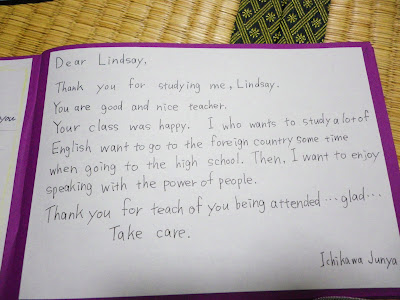 Dear Lindsay,
Thank you for studying me, Lindsay.
You are good and nice teacher.
Your class was happy. I who wants to study a lot of
English want to go to the foreign country some time
when going to the high school. Then, I want to enjoy
speaking with the power of people.
Thank you for teach of you being attended...glad...
Take care.
Ichikawa Junya
you